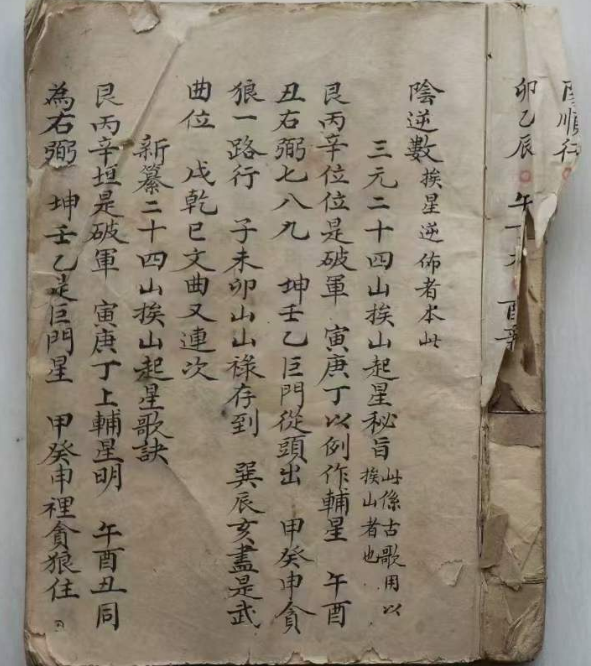 順行
卯乙辰 午
陰逆數 挨星逆佈者本此
三元二十四山挨山起星秘旨 此係古歌用以挨山者也
艮丙辛位位是破軍 寅庚丁以例作輔星 午酉
丑右弼七八九 坤壬乙巨門從頭出 甲癸申貪
狼一路行 子未卯山山祿存到 巽辰亥盡是武
曲位 戌乾巳文曲又連次
新纂二十四山挨山起星歌訣
艮丙辛垣是破軍 寅庚丁上輔星明 午酉丑同
為右弼 坤壬乙是巨門星 甲癸申裡貪狼住